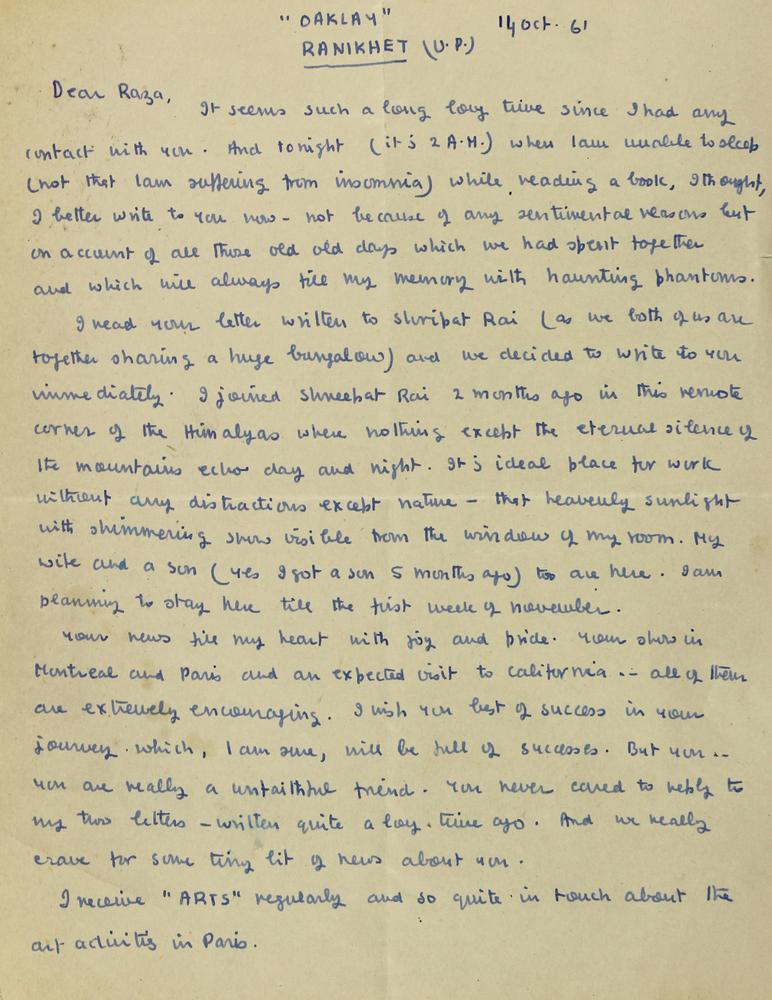 "OAKLAY" 14 Oct. 61
RANIKHET (U.P.)
Dear Raza,
It seems such a long long time since I had any
contact with you. And tonight (it's 2 A.M.) when I am unable to sleep
(not that I am suffering from insomnia) while reading a book, I thought,
I better write to you now - not because of any sentimental reasons but
on account of all those old old days which we had spent together
and which will always fill my memory with haunting phantoms.
I read your letter written to Shripat Rai (as we both of us are
together sharing a huge bungalow) and we decided to write to you
immediately. I joined Shreepat Rai 2 months ago in this remote
corner of the Himalyas where nothing except the eternal silence of
the mountains echo day and night. It's ideal place for work
without any distractions except nature - that heavenly sunlight
with shimmering snow visible from the window of my room. My
wife and a son (yes I got a son 5 months ago) too are here. I am
planning to stay here till the first week of november.
Your news fill my heart with joy and pride. Your show in
Montreal and Paris and an expected visit to california .- all of them
are extremely encouraging. I wish you best of success in your
journey. which, I am sure, will be full of successes. But you ..
you are really a unfaithful friend. You never cared to reply to
my two letters - written quite a long. time ago. And we really
crave for some tiny bit of news about you.
I receive "ARTS" regularly and so quite in touch about the
art activities in Paris.